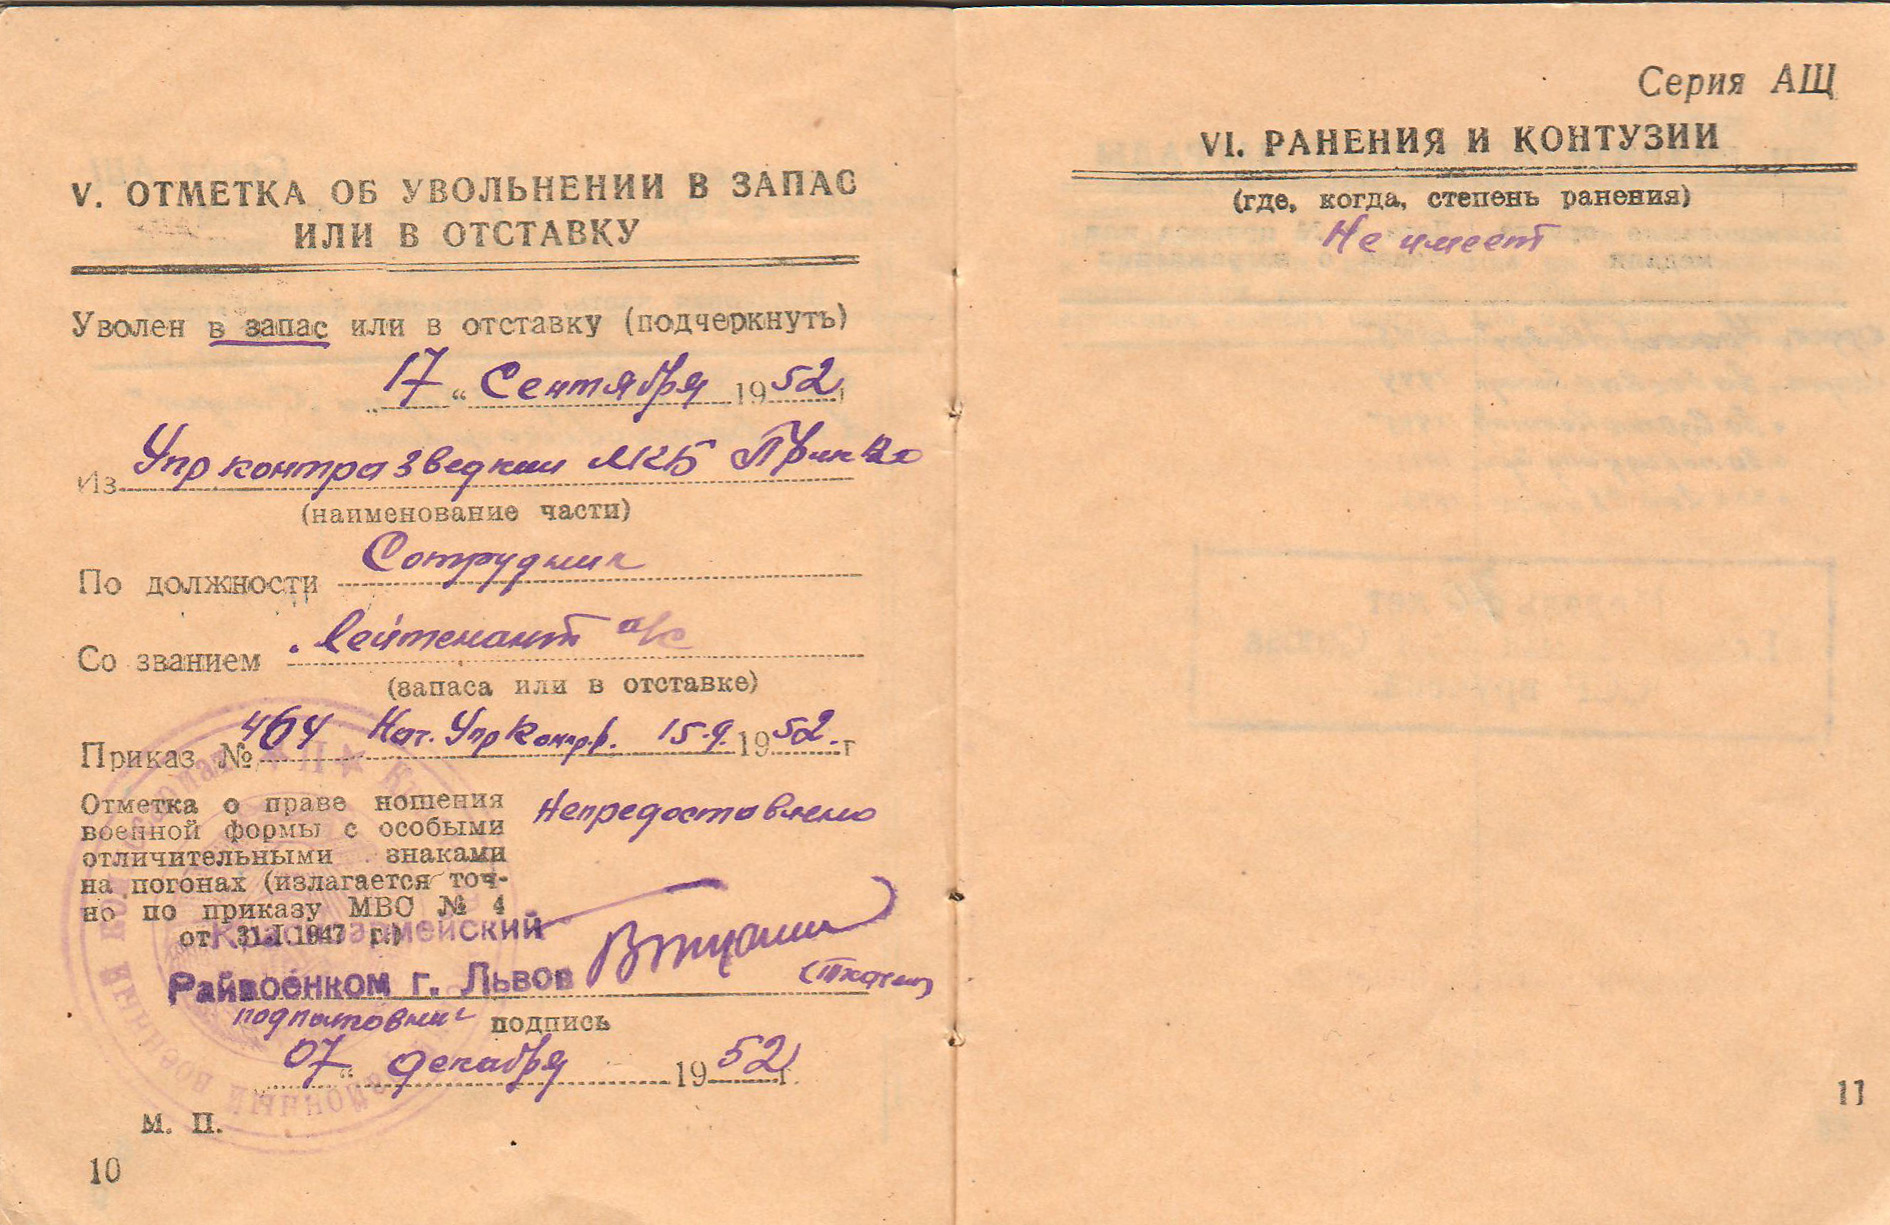 V. ОТМЕТКА ОБ УВОЛЬНЕНИИ В ЗАПАС
ИЛИ В ОТСТАВКУ
Уволен в запас или в отставку (подчеркнуть)
„17“ Сентября 1952 г
Из Упр контразведки МГБ
(наименование части)
По должности Сотрудник
Со званием Лейтенант а/с
(запаса или в отставке)
Приказ № 464 Нач. Упр Контр.р. 15.9. 1952. г
Отметка о праве ношения
военной формы с особыми
отличительными знаками
на погонах (излагается точ-
но по приказу МВС № 4
от 31.I.1947 г.)
Непредоставлено
Красноармейский
Райвоенком г. Львов
подполковник подпись
„07“ декабря 1952 г.
М. П.
10
Серия АЩ
VI. РАНЕНИЯ И КОНТУЗИИ
(где, когда, степень ранения)
Не имеет
11